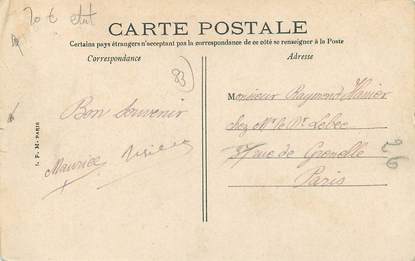 20 € etat
CARTE POSTALE
Certains pays étrangers n'acceptant pas la correspondance de ce côté se renseigner à la Poste
Correspondance
Adresse
83
Bon Souvenir
Maurice
Monsieur Raymond
chez Mr le Dr Lebec
37 rue de Grenelle
Paris
26
L. F. M-PARIS